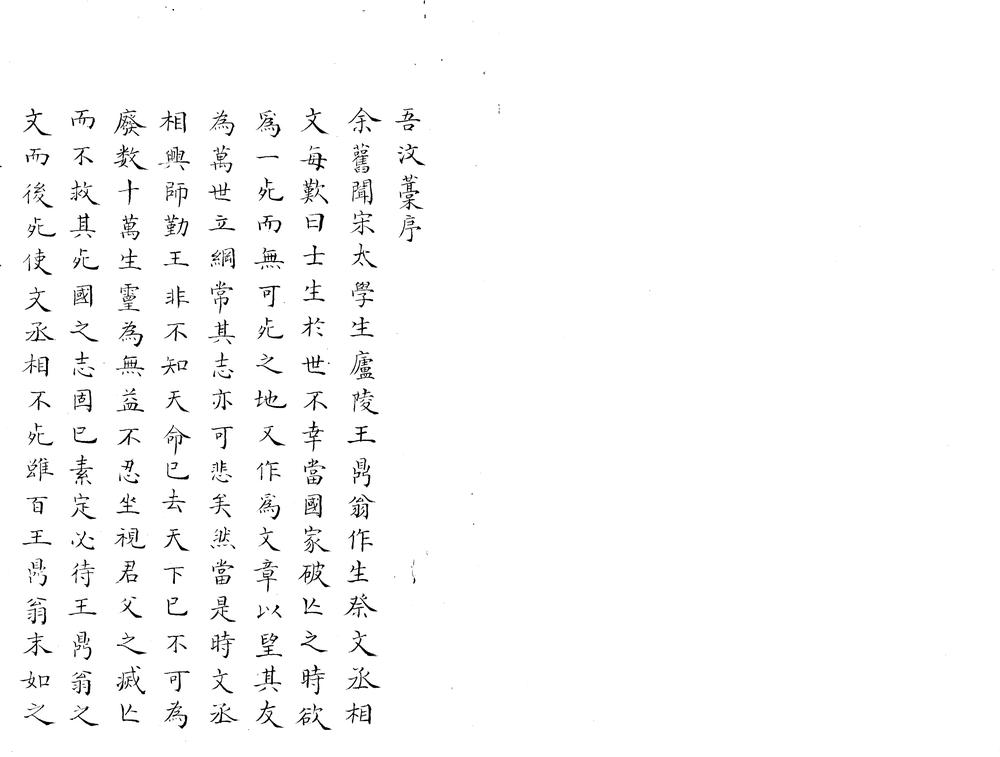 吾汶藁序
余舊聞宋太學生廬陵王鼎翁作生祭文丞相
文每歎曰士生於世不幸當國家破亡之時欲
爲一死而無可死之地又作爲文章以望其友
為萬世立綱常其志亦可悲矣然當是時文丞
相興師勤王非不知天命已去天下已不可為
廢数十萬生靈為無益不忍坐視君父之滅亡
而不救其死國之志固已素定必待王鼎翁之
文而後死使文丞相不死雖百王鼎翁末如之